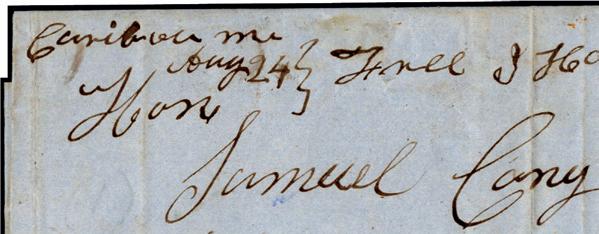 Caribou me
Aug 24 } Free J Ha
Hon
Samuel Cony